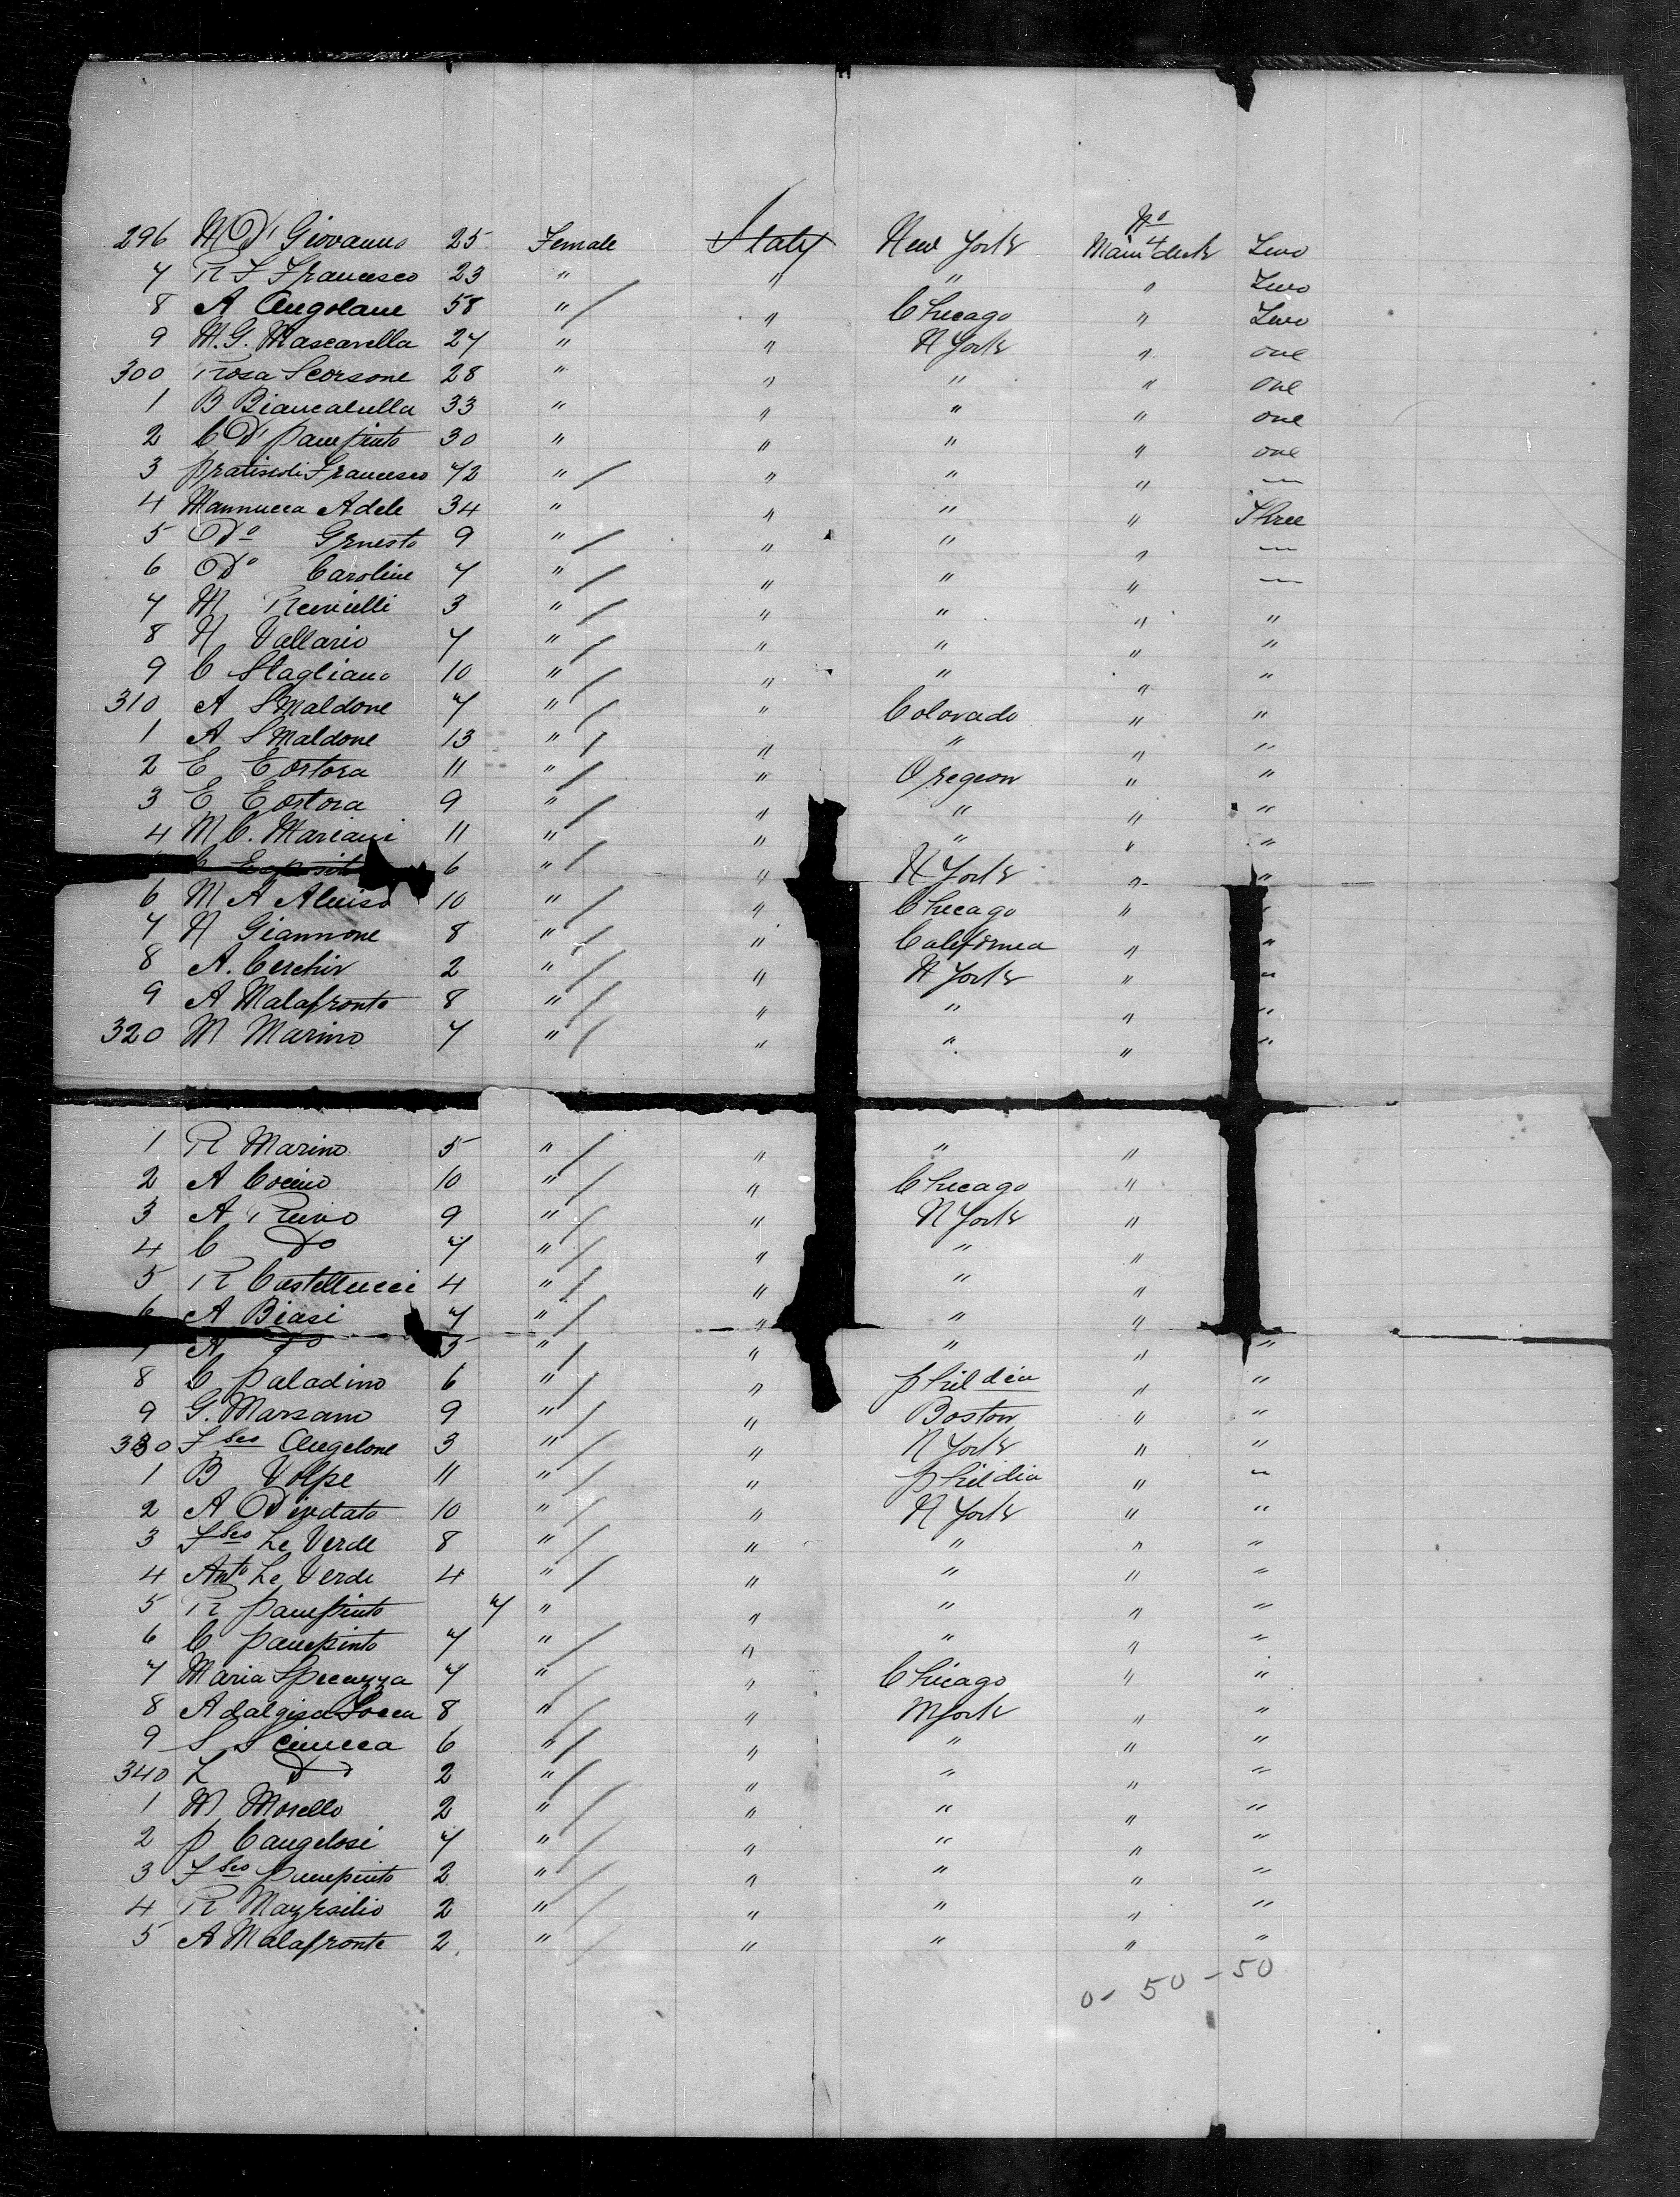 296 M D' Giovanno 25 Female Italy New York No 4 Main deck Two
7 R F Francesco 23 " " " " Two
8 A Angolane 58 " " Chicago " Two
9 M. G. Mascarella 27 " " N York " one
300 Rosa Scorsone 28 " " " " one
1 B 33 " " " " one
2 C D' Panepinto 30 " " " " one
3 Francesco 72 " " " " —
4 Mannucca Adele 34 " " " " Three
5 Do Ernesto 9 " " " " —
6 Do Caroline 7 " " " " —
7 M 3 " " " " "
8 N Vallario 7 " " " " "
9 C Stagliano 10 " " " " "
310 A Smaldone 7 " " Colorado " "
1 A Smaldone 13 " " " " "
2 E Eostora 11 " " Oregeon " "
3 E Eostora 9 " " " " "
4 M C. Mariani 11 " " " " "
C 6 " " N York " "
6 M A Aluiso 10 " " Chicago " "
7 N Giannone 8 " " California " "
8 A. Cerchir 2 " " N York " "
9 A Malafronte 8 " " " " "
320 M Marino 7 " " " " "
1 R Marino 5 " " " "
2 A Cocino 10 " " Chicago "
3 A Ruino 9 " " N York "
4 C Do 7 " " " "
5 R Castellucci 4 " " " "
6 A Biasi 7 " " " "
7 A Do 5 " " " " "
8 C Paladino 6 " " Phildia " "
9 G. Marsano 9 " " Boston " "
330 Fsco Angelone 3 " " N York " "
1 B Volpe 11 " " Phildia " "
2 A Diodato 10 " " N York " "
3 Fsco Le Verde 8 " " " " "
4 Anto Le Verde 4 " " " " "
5 R Panepinto 7 " " " " "
6 C Panepinto 7 " " " " "
7 Maria Specazza 7 " " Chicago " "
8 Adalgisa Socca 8 " " N York " "
9 S Sciucca 6 " " " " "
340 L Do 2 " " " " "
1 M Morello 2 " " " " "
2 P Cangelosi 7 " " " " "
3 Fsco Panepinto 2 " " " " "
4 R Mazzsilio 2 " " " " "
5 A Malafronte 2 " " " " "
0 - 50 - 50